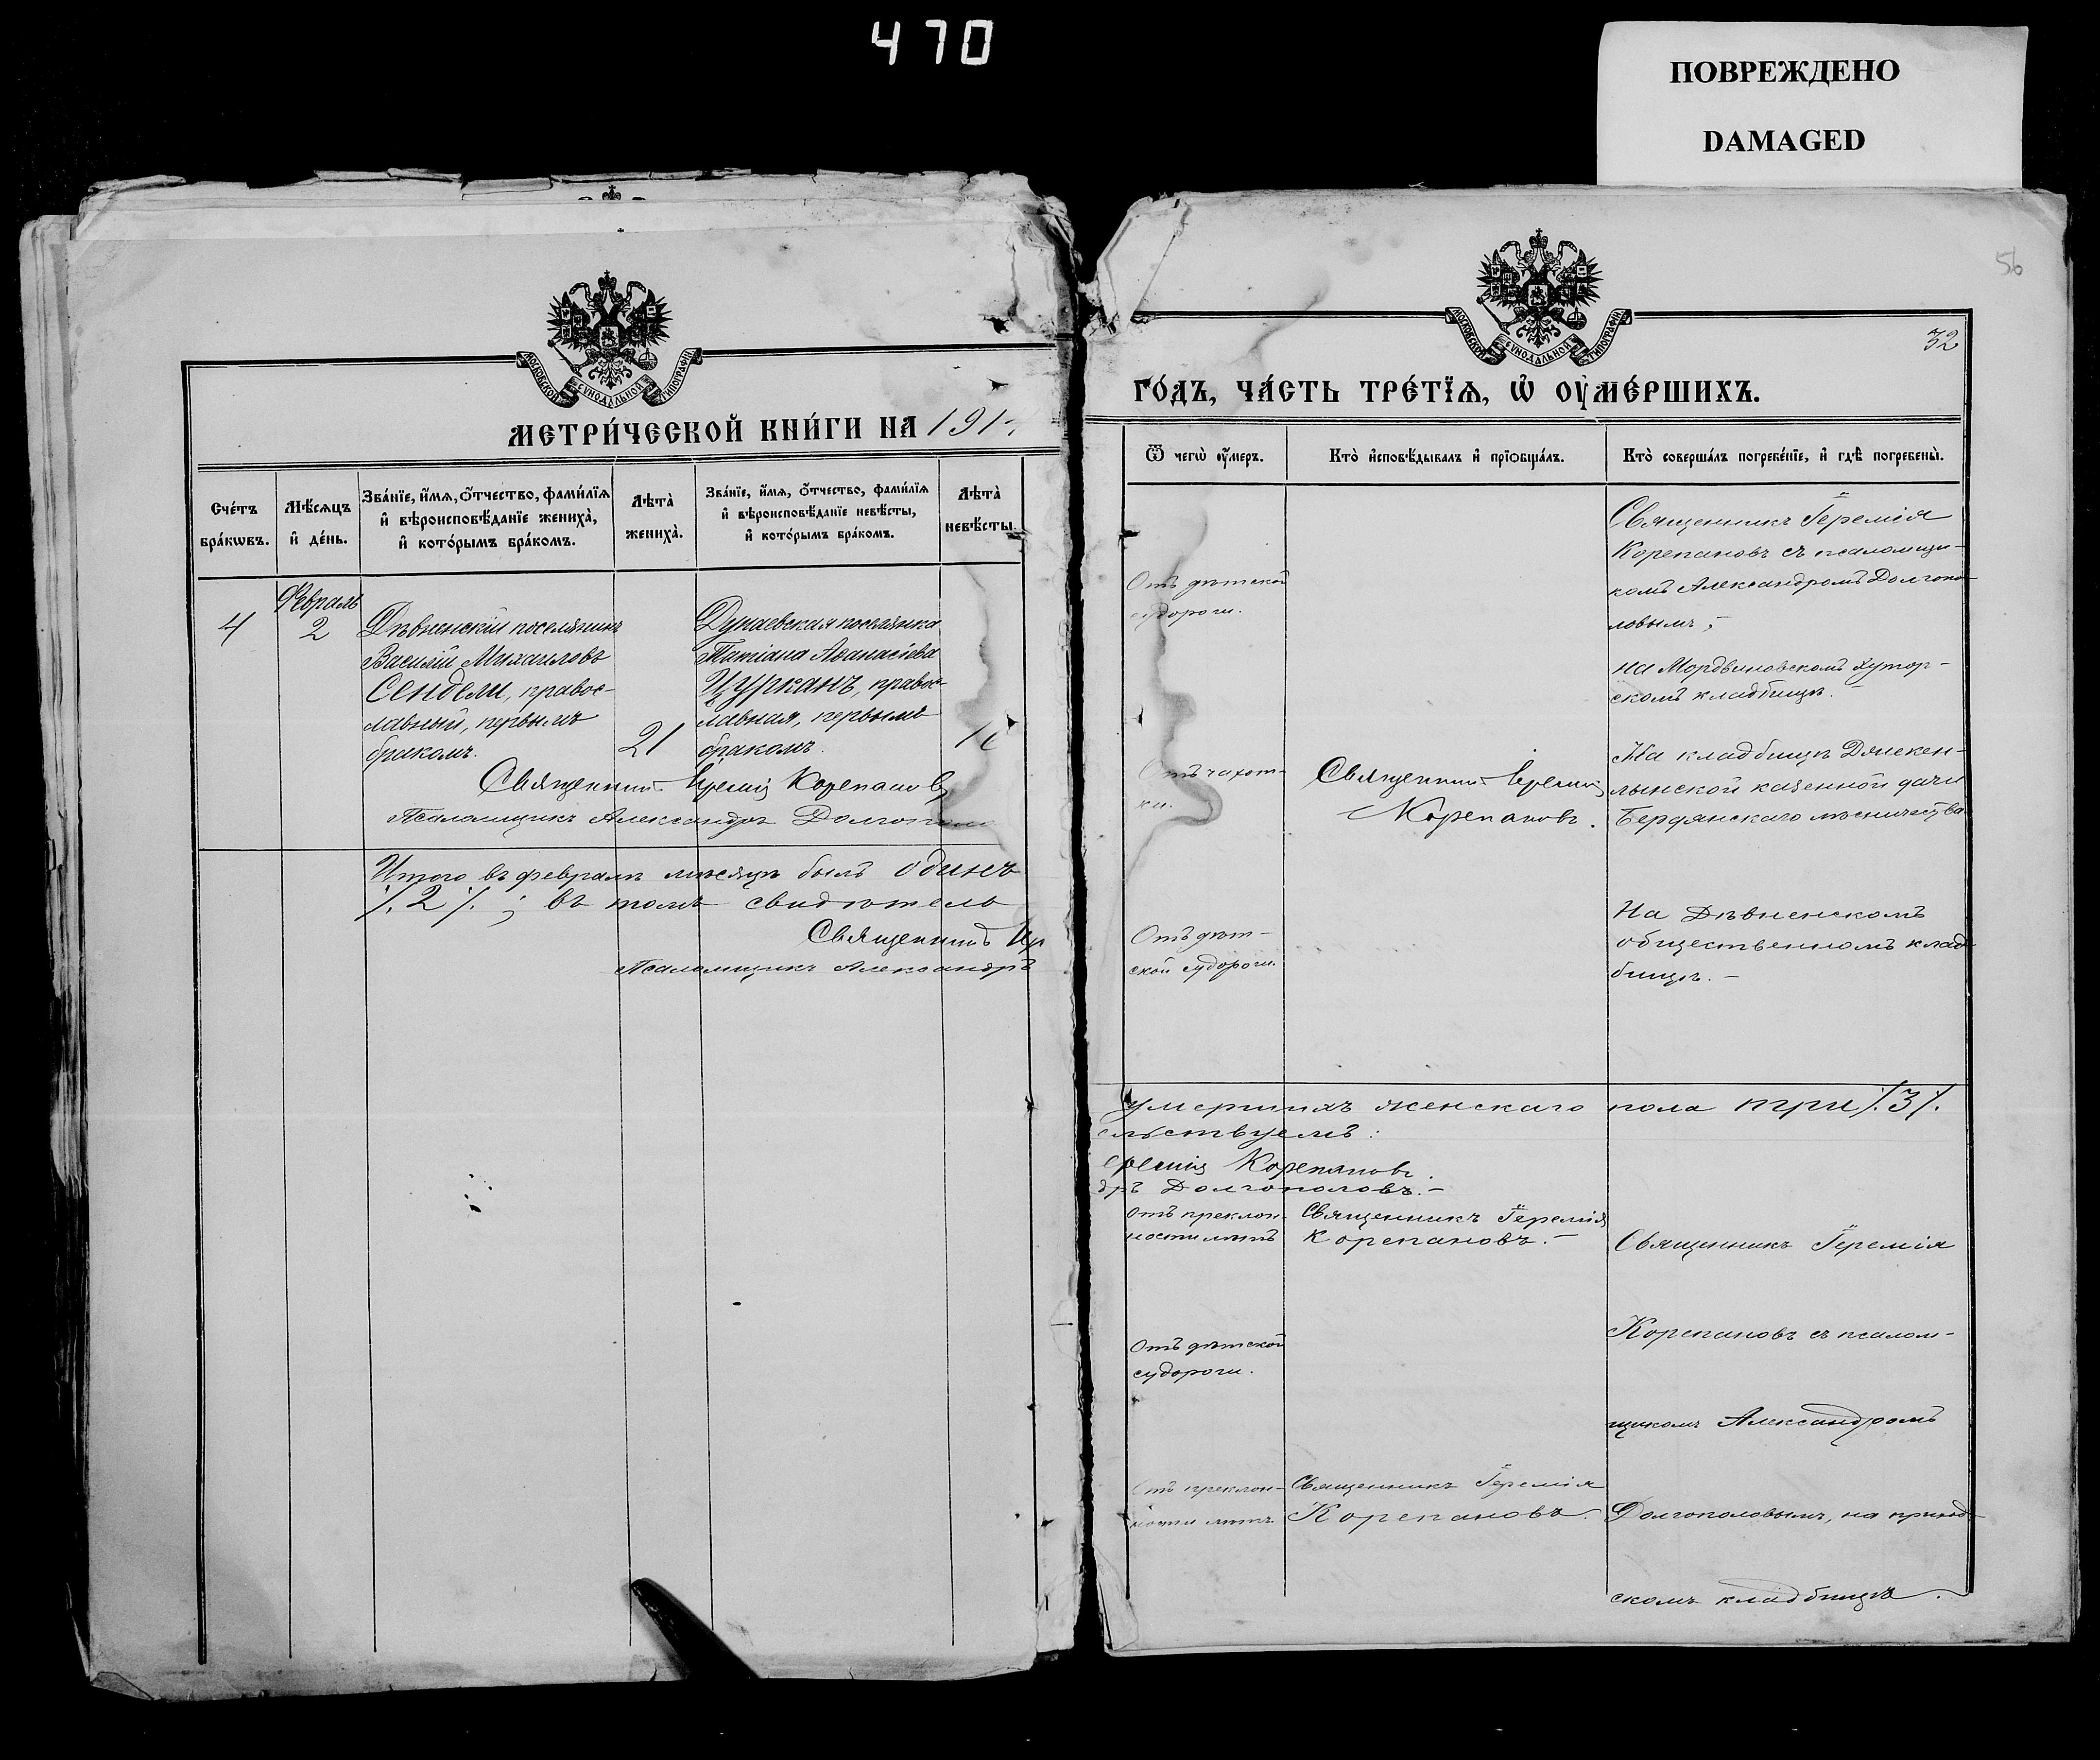 470
ПОВРЕЖДЕНО
DAMAGED
МОСКОВСКОЙ СУНОДАЛЬНОЙ ТИПОГРАФІИ
МЕТРИ́ЧЕСКОЙ КНИ́ГИ НА 191
Сче́тъ бра́кѡвъ.
Мѣ́сяцъ и҆ де́нь.
Зва́нїе, и҆́мѧ, ѻ҆́тчество, фами́лїѧ
и҆ вѣроисповѣ́данїе жениха̀,
и҆ кото́рымъ бра́комъ.
Лѣта̀ жениха̀.
Зва́нїе, и҆́мѧ, ѻ҆́тчество, фами́лїѧ
и҆ вѣроисповѣ́данїе невѣ́сты,
и҆ кото́рымъ бра́комъ.
Лѣта̀ невѣ́сты.
4
Февраль
2
Дѣвненскій поселянинъ
Василій Михаиловъ
Сендели, правос-
лавный, первымъ
бракомъ.
21
Дунаевская поселянка
Татіана Аѳанасіева
Цурканъ, правос-
лавная, первымъ
бракомъ.
Священникъ Іеремія Корепановъ
Псаломщикъ Александръ
Итого въ февралѣ мѣсяцѣ былъ одинъ
/.2/. ; въ томъ свидѣтель
Священникъ Іер
Псаломщикъ Александръ
56
32
МОСКОВСКОЙ СУНОДАЛЬНОЙ ТИПОГРАФІИ
ГО́ДЪ, ЧА́СТЬ ТРЕ́ТЇѦ, Ѡ҆ ОУ҆МЕ́РШИХЪ.
Ѿ чегѡ̀ оу҆́меръ.
Кто̀ и҆сповѣ́дывалъ и҆ прїѻбща́лъ.
Кто̀ соверша́лъ погребе́нїе, и҆ гдѣ̀ погребены̀.
Отъ дѣтской
судороги.
Священникъ Іеремія
Корепановъ съ псаломщи-
комъ Александромъ Долгопо-
ловымъ,
на Мордвиновскомъ хутор-
скомъ кладбищѣ.
Отъ чахот-
ки.
Священникъ Іеремія
Корепановъ.
На кладбищѣ
казенной дачи
Бердянскаго лѣсничества
Отъ дѣт-
ской судороги.
На Дѣвненскомъ
общественномъ клад-
бищѣ. –
умершихъ женскаго пола три /.3/.
ельствуемъ:
еремія Корепановъ.
дръ Долгополовъ. –
Отъ преклон-
ности лѣтъ
Священникъ Іеремія
Корепановъ. –
Священникъ Іеремія
Отъ дѣтской
судороги.
Корепановъ съ псалом-
щикомъ Александромъ
Отъ преклон-
ности лѣтъ.
Священникъ Іеремія
Корепановъ.
Долгополовымъ, на приход-
скомъ кладбищѣ.